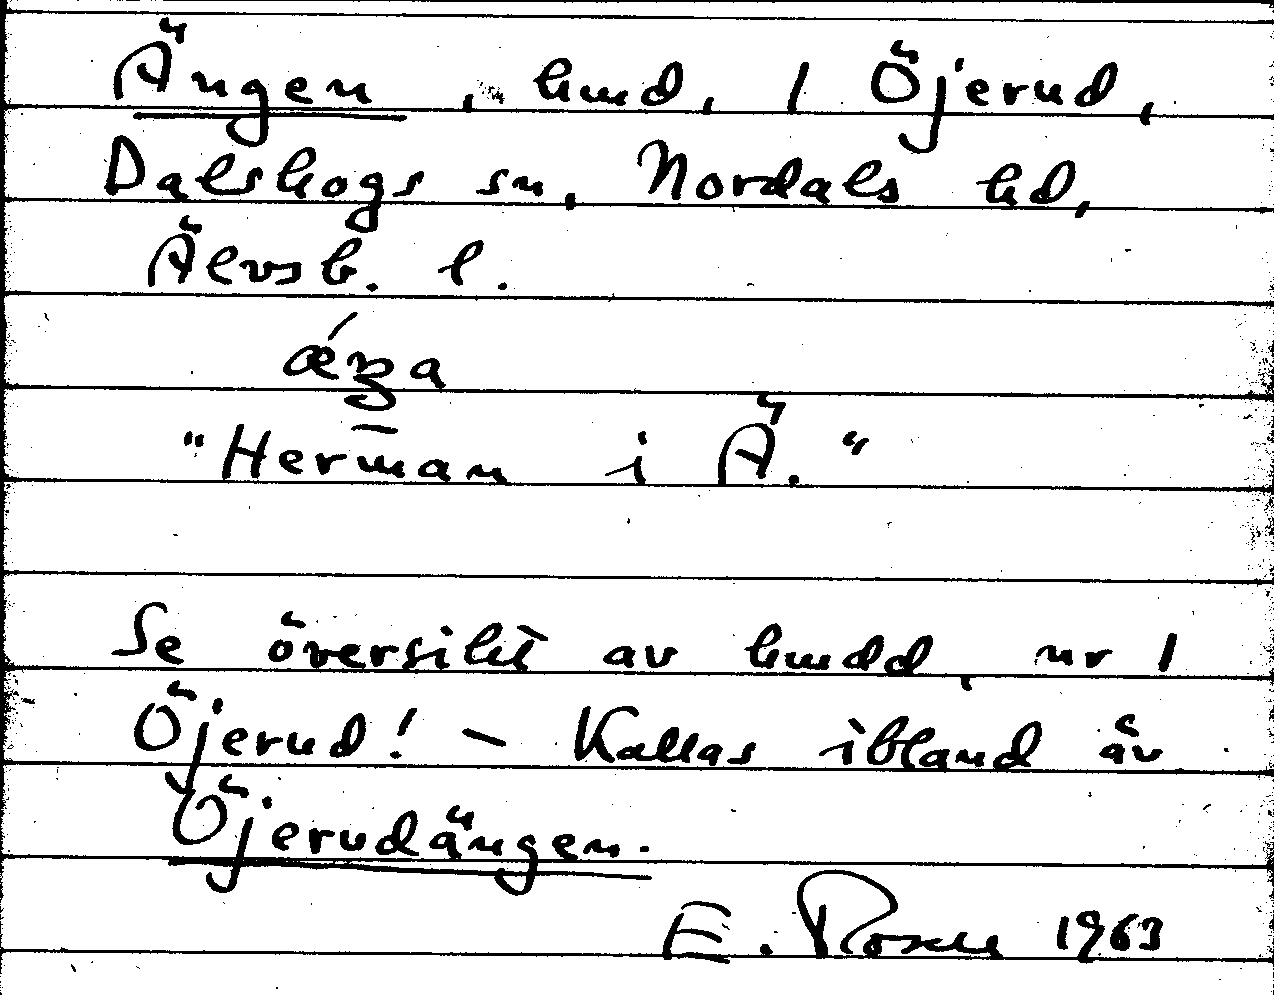 Ängen, hmd, 1 Öjerud,
Dalskogs sn, Nordals hd,
Älvsb. l.
"Herman i Ä."
Se översikt av hmdd, nr 1
Öjerud! – Kallas ibland äv
Öjerudängen.
E. Rosell 1963